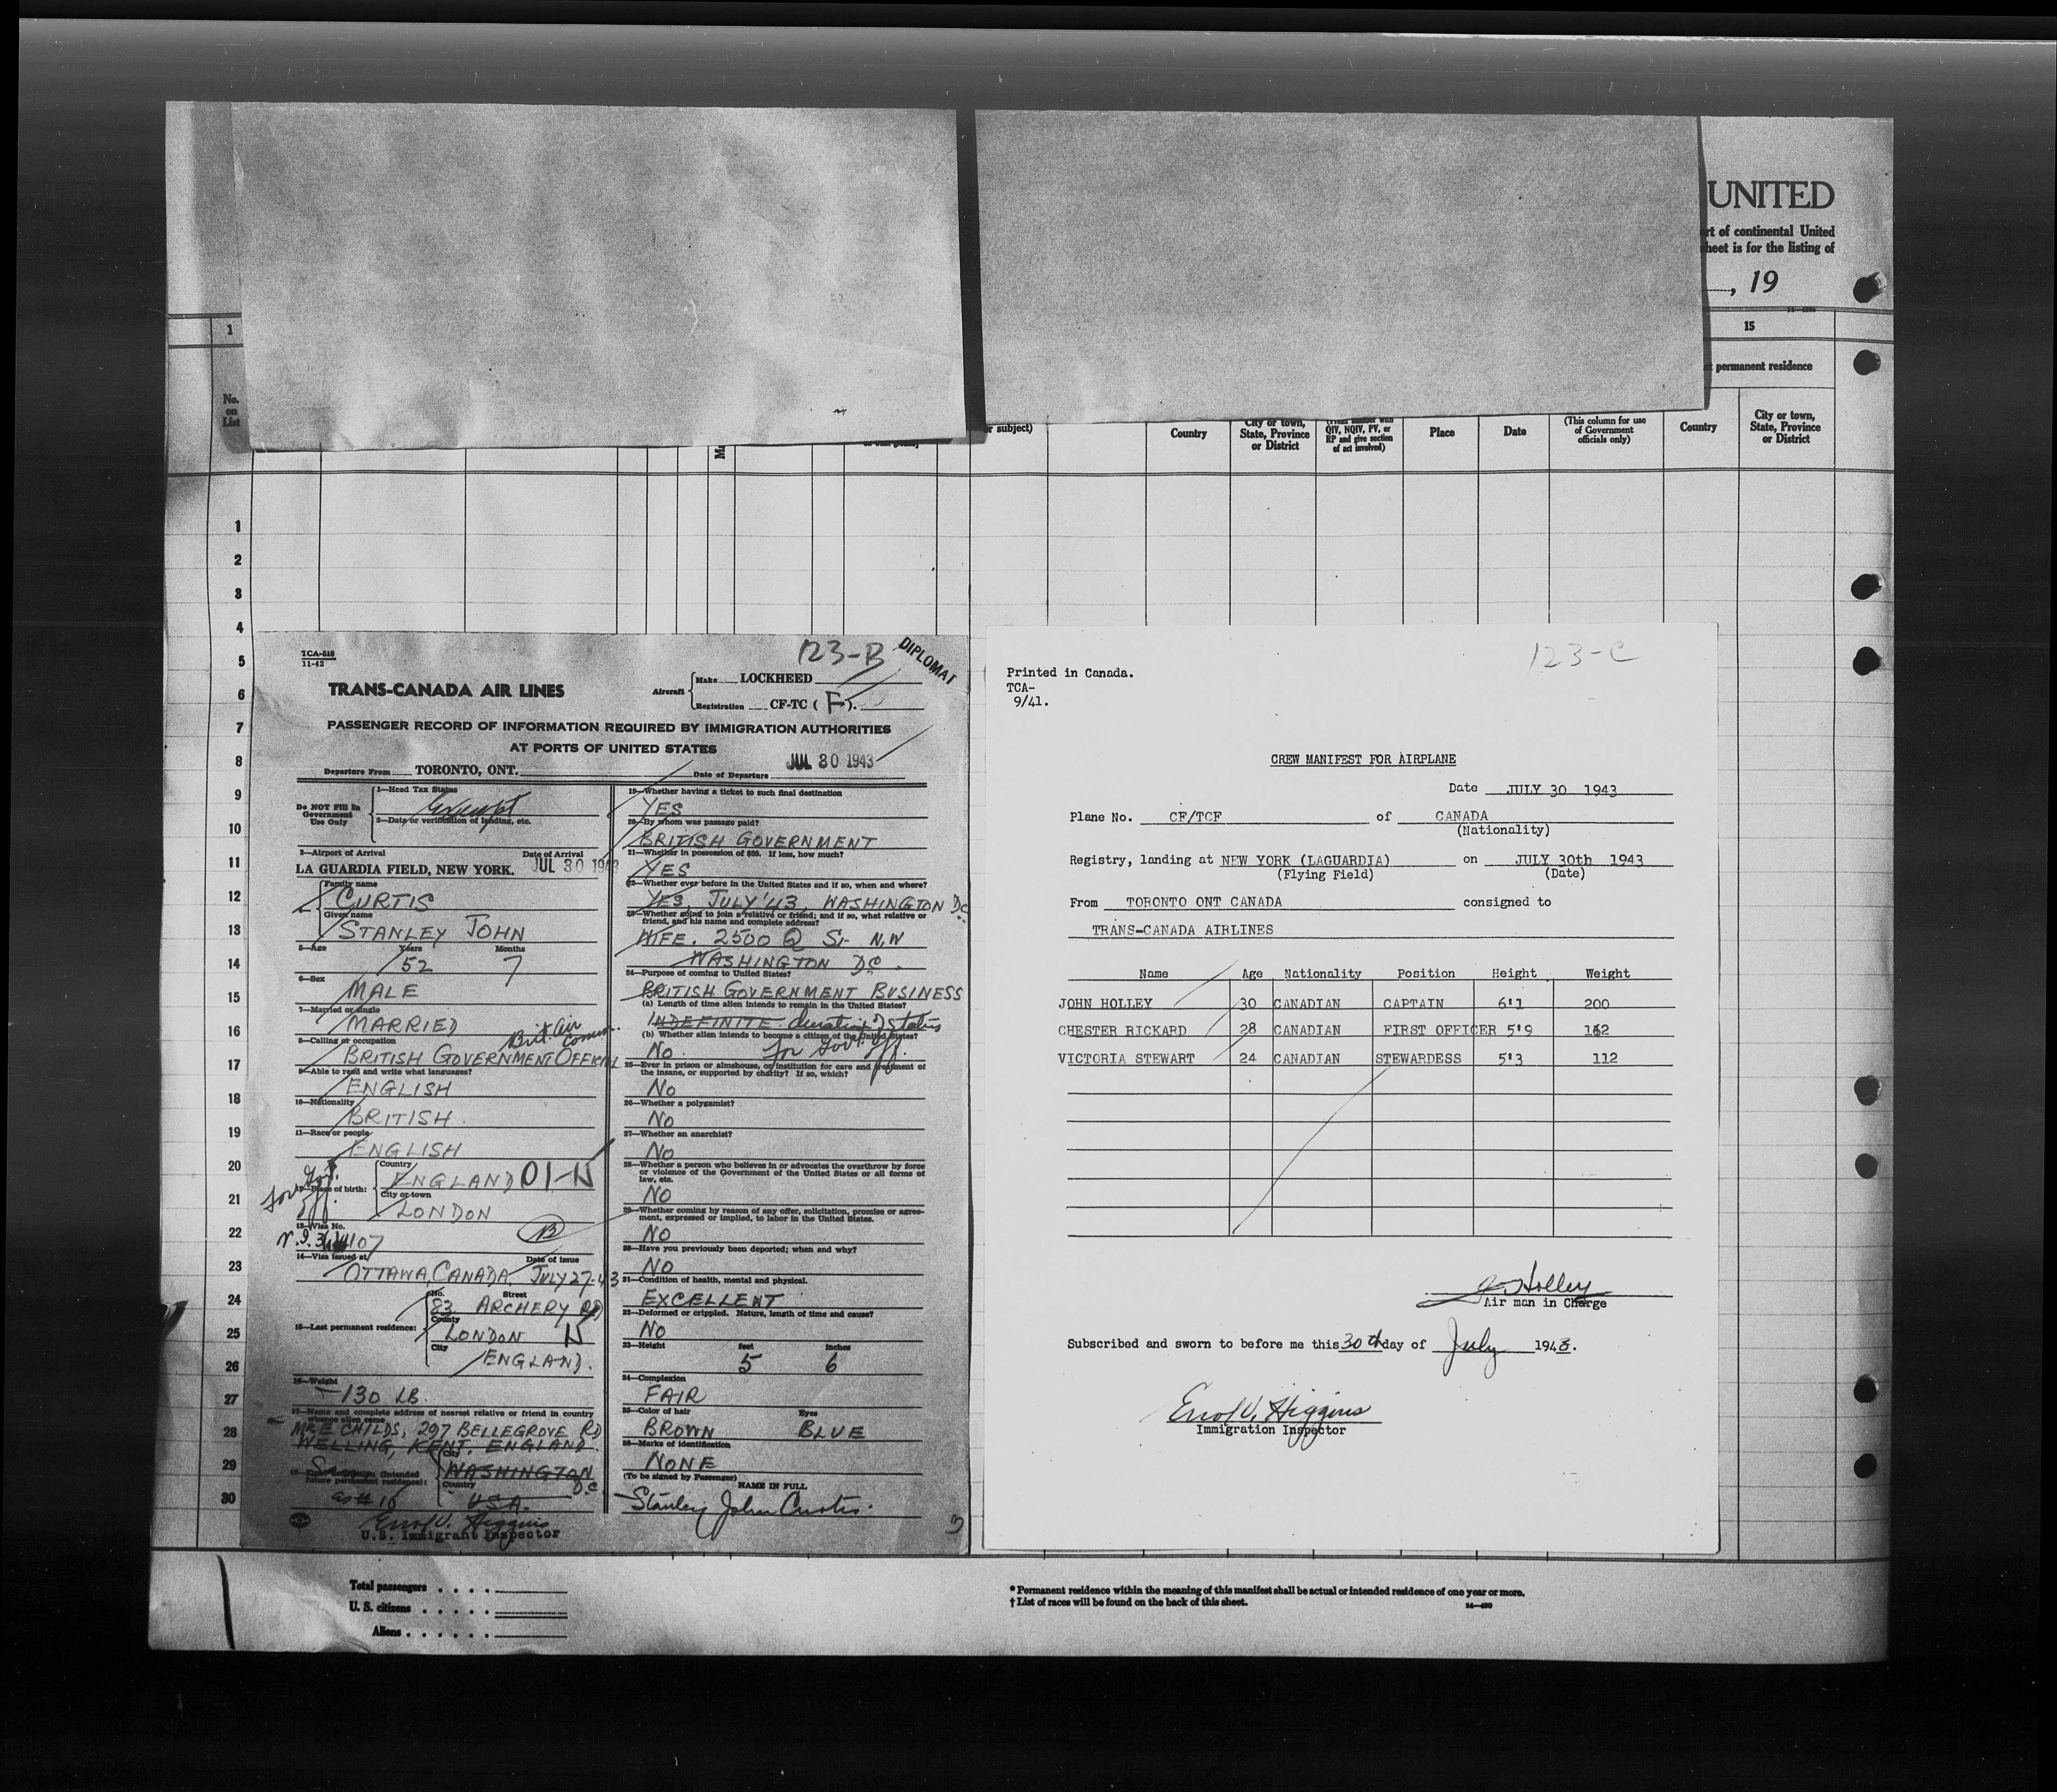 UNITED
rt of continental United
heet is for the listing of
, 19
1
15
permanent residence
No.
on
List
r subject)
Country
City or town,
State, Province
or District
QIV, NQIV, PV, or
RP and give section
of act involved)
Place
Date
(This column for use
of Government
officials only)
Country
City or town,
State, Province
or District
1
2
3
4
5
6
7
8
9
10
11
12
13
14
15
16
17
18
19
20
21
22
23
24
25
26
27
28
29
30
TCA-518
11-42
123-B
DIPLOMAT
TRANS-CANADA AIR LINES
Aircraft
Make LOCKHEED
Registration CF-TC ( F ).
PASSENGER RECORD OF INFORMATION REQUIRED BY IMMIGRATION AUTHORITIES
AT PORTS OF UNITED STATES
Departure From TORONTO, ONT. Date of Departure JUL 30 1943
Do NOT Fill In
Government
Use Only
1—Head Tax Status
Exempt
2—Date or verification of landing, etc.
3—Airport of Arrival Date of Arrival
LA GUARDIA FIELD, NEW YORK. JUL 30 1943
Family name
CURTIS
Given name
STANLEY JOHN
5—Age Years Months
52 7
6—Sex
MALE
7—Married or single
MARRIED
Brit Air
Comm.
8—Calling or occupation
BRITISH GOVERNMENT OFFICIAL
9—Able to read and write what languages?
ENGLISH
10—Nationality
BRITISH.
11—Race or people
ENGLISH
for Gov.
off.
12—Place of birth:
Country
ENGLAND 01-N
City or town
LONDON
13—Visa No.
107
14—Visa issued at Date of issue
OTTAWA, CANADA. JULY 27-43
15—Last permanent residence:
No. Street
83 ARCHERY RD
County
LONDON N
City
ENGLAND.
16—Weight
130 LB.
17—Name and complete address of nearest relative or friend in country
whence alien came
MR E CHILDS, 297 BELLEGROVE RD
WELLING, KENT, ENGLAND
(Intended
future permanent residence):
City
WASHINGTON
D.C.
Country
U.S.A.
as # 15
Errol V. Higgins
U.S. Immigrant Inspector
19—Whether having a ticket to such final destination
YES
20—By whom was passage paid?
BRITISH GOVERNMENT
21—Whether in possession of $50. If less, how much?
YES
22—Whether ever before in the United States and if so, when and where?
YES, JULY '43, WASHINGTON DC.
23—Whether going to join a relative or friend; and if so, what relative or
friend, and his name and complete address?
WIFE. 2500 Q St N.W
WASHINGTON DC.
24—Purpose of coming to United States?
BRITISH GOVERNMENT BUSINESS
(a) Length of time alien intends to remain in the United States?
INDEFINITE duration of status
(b) Whether alien intends to become a citizen of the United States?
No. for Gov't off.
25—Ever in prison or almshouse, or institution for care and treatment of
the insane, or supported by charity? If so, which?
No
26—Whether a polygamist?
No
27—Whether an anarchist?
No
28—Whether a person who believes in or advocates the overthrow by force
or violence of the Government of the United States or all forms of
law, etc.
No
29—Whether coming by reason of any offer, solicitation, promise or agree-
ment, expressed or implied, to labor in the United States.
No
30—Have you previously been deported; when and why?
No
31—Condition of health, mental and physical.
EXCELLENT
32—Deformed or crippled. Nature, length of time and cause?
No
33—Height feet inches
5 6
34—Complexion
FAIR
35—Color of hair Eyes
BROWN BLUE
36—Marks of identification
NONE
(To be signed by Passenger)
NAME IN FULL
Stanley John Curtis.
123-C
Printed in Canada.
TCA-
9/41.
CREW MANIFEST FOR AIRPLANE
Date JULY 30 1943
Plane No. CF/TCF of CANADA
(Nationality)
Registry, landing at NEW YORK (LAGUARDIA) on JULY 30th 1943
(Flying Field) (Date)
From TORONTO ONT CANADA consigned to
TRANS-CANADA AIRLINES
Name Age Nationality Position Height Weight
JOHN HOLLEY 30 CANADIAN CAPTAIN 6'1 200
CHESTER RICKARD 28 CANADIAN FIRST OFFICER 5'9 162
VICTORIA STEWART 24 CANADIAN STEWARDESS 5'3 112
J Holley
Air man in Charge
Subscribed and sworn to before me this 30th day of July 1943.
Errol V. Higgins
Immigration Inspector
Total passengers
U. S. citizens
Aliens
* Permanent residence within the meaning of this manifest shall be actual or intended residence of one year or more.
† List of races will be found on the back of this sheet.